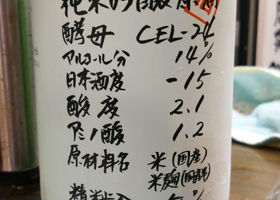 純米
酵母 CEL-24
アルコール分 14%
日本酒度 -15
酸度 2.1
アミノ酸 1.2
原材料名 米(国産)
米麹(国産米)
精米歩合 %